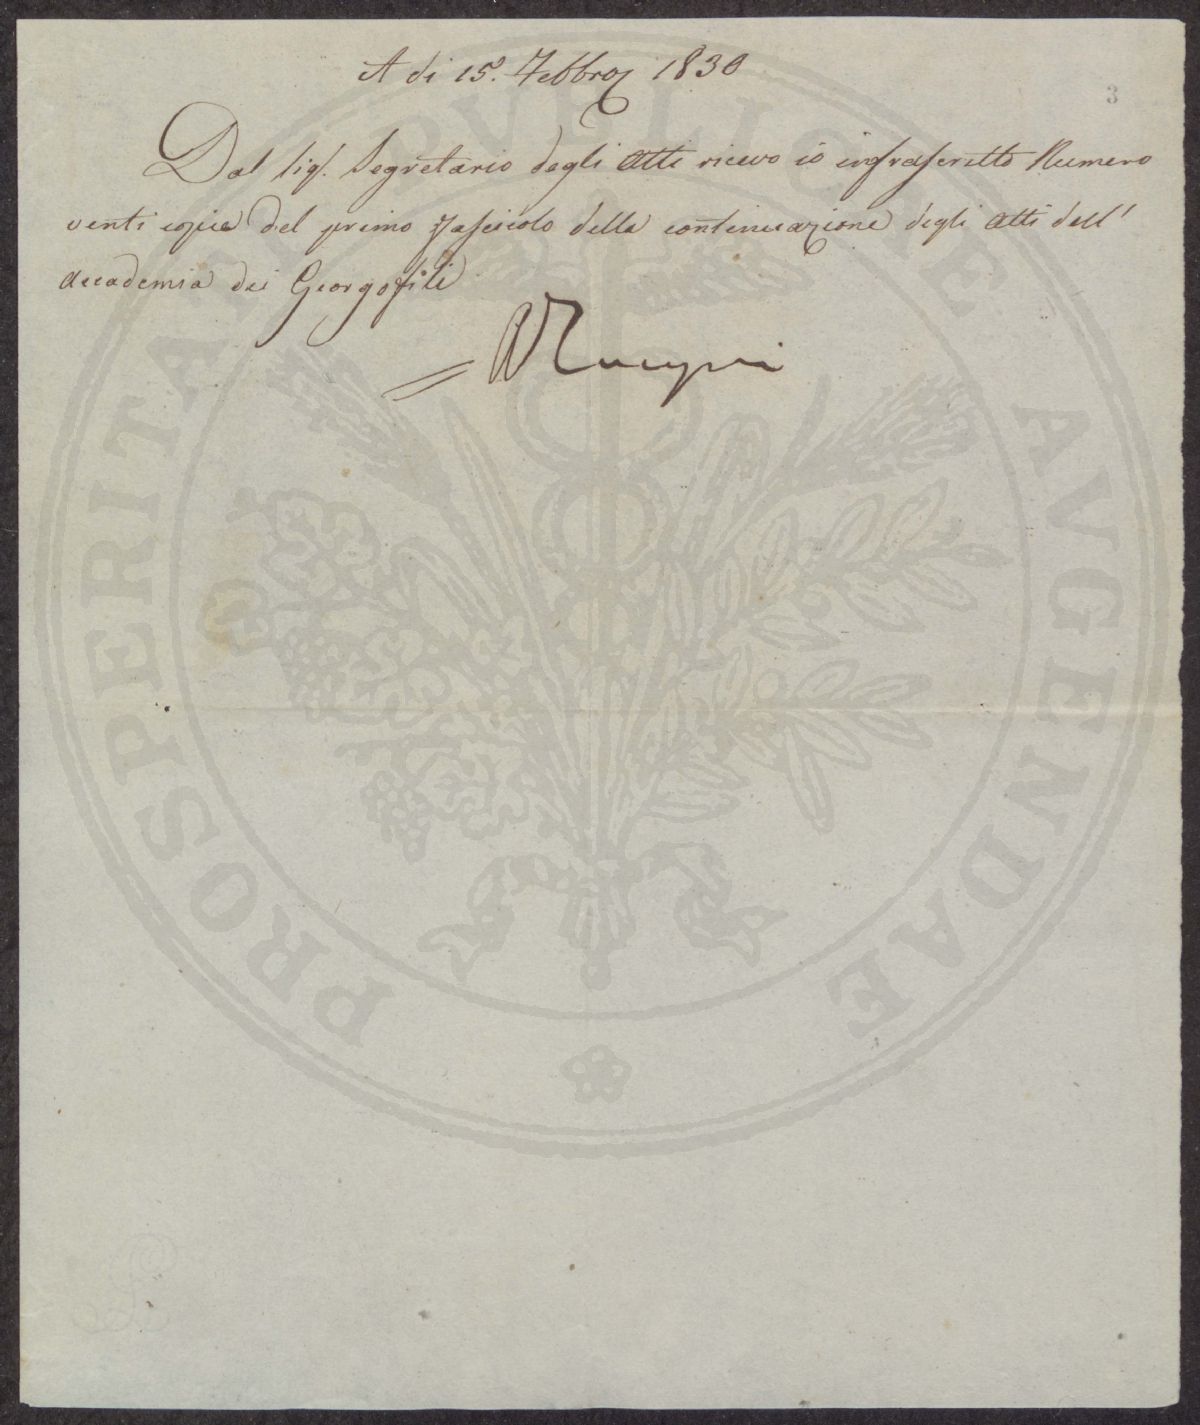 A di 15. Febbro 1830
3
Dal Sigr. Segretario degli Atti ricevo io infrascritto Numero
venti copie del primo Fascicolo della continuazione degli Atti dell'
Accademia dei Georgofili
PROSPERITATI PVBLICAE AVGENDAE